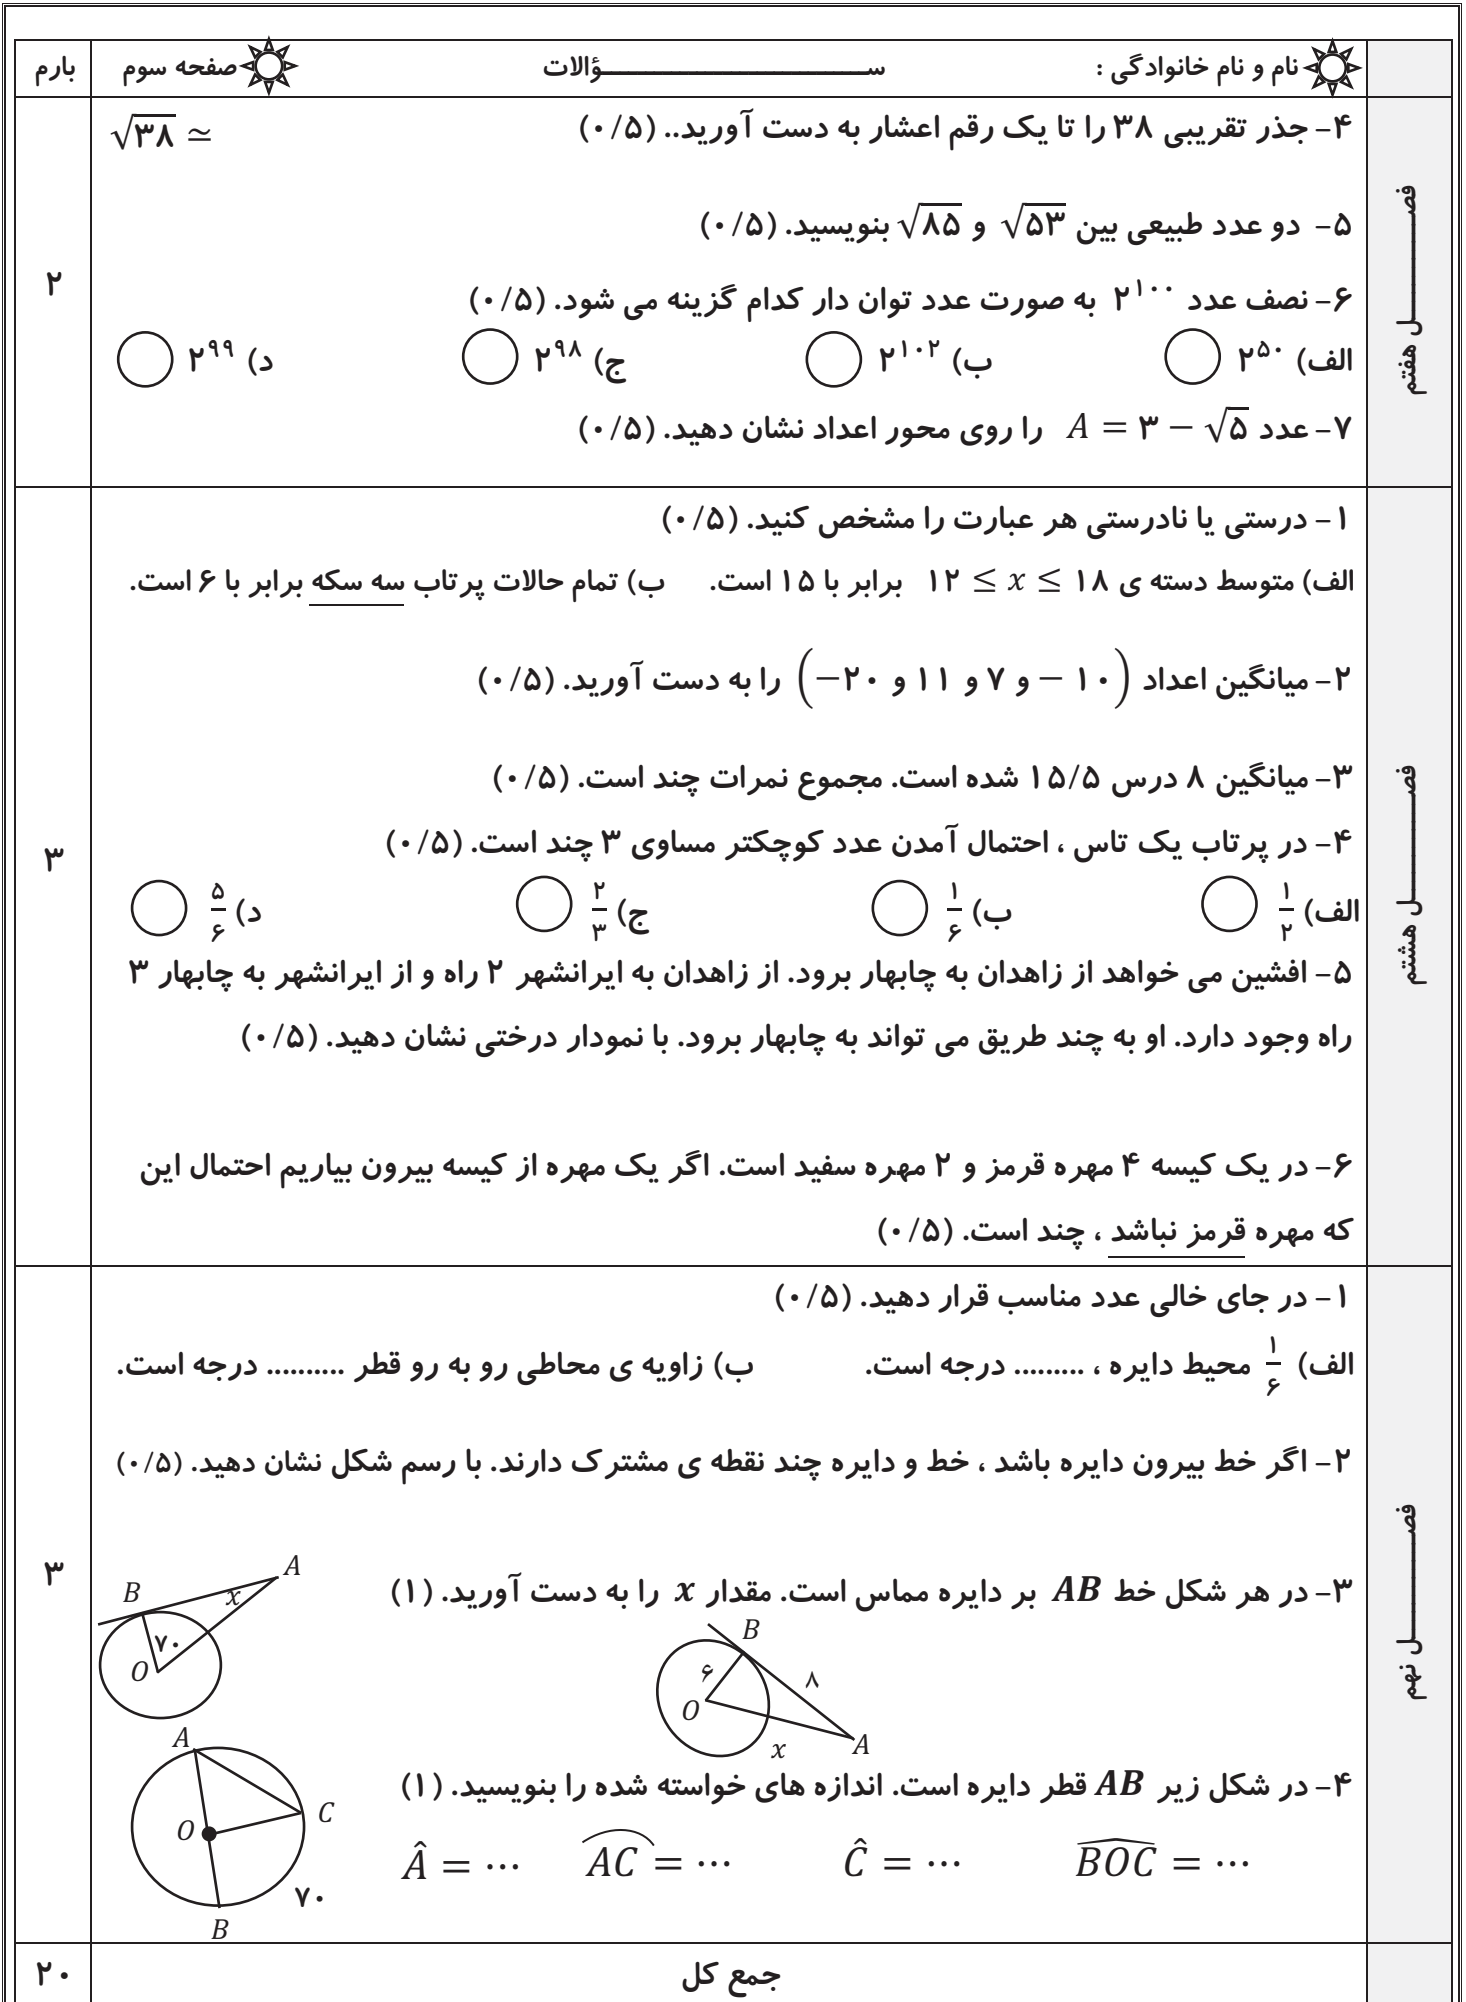 نام و نام خانوادگی : ســـــــــــــــــــؤالات صفحه سوم بارم
فصــــــــــل هفتم
۲
۴- جذر تقریبی ۳۸ را تا یک رقم اعشار به دست آورید.. (۰/۵) √۳۸ ≃
۵- دو عدد طبیعی بین √۵۳ و √۸۵ بنویسید. (۰/۵)
۶- نصف عدد ۲^۱۰۰ به صورت عدد توان دار کدام گزینه می شود. (۰/۵)
الف) ۲^۵۰ ب) ۲^۱۰۲ ج) ۲^۹۸ د) ۲^۹۹
۷- عدد A = ۳ − √۵ را روی محور اعداد نشان دهید. (۰/۵)
فصــــــــــل هشتم
۳
۱- درستی یا نادرستی هر عبارت را مشخص کنید. (۰/۵)
الف) متوسط دسته ی ۱۲ ≤ x ≤ ۱۸ برابر با ۱۵ است. ب) تمام حالات پرتاب سه سکه برابر با ۶ است.
۲- میانگین اعداد (−۲۰ و ۱۱ و ۷ و − ۱۰) را به دست آورید. (۰/۵)
۳- میانگین ۸ درس ۱۵/۵ شده است. مجموع نمرات چند است. (۰/۵)
۴- در پرتاب یک تاس ، احتمال آمدن عدد کوچکتر مساوی ۳ چند است. (۰/۵)
الف) ۱/۲ ب) ۱/۶ ج) ۲/۳ د) ۵/۶
۵- افشین می خواهد از زاهدان به چابهار برود. از زاهدان به ایرانشهر ۲ راه و از ایرانشهر به چابهار ۳
راه وجود دارد. او به چند طریق می تواند به چابهار برود. با نمودار درختی نشان دهید. (۰/۵)
۶- در یک کیسه ۴ مهره قرمز و ۲ مهره سفید است. اگر یک مهره از کیسه بیرون بیاریم احتمال این
که مهره قرمز نباشد ، چند است. (۰/۵)
فصــــــــــل نهم
۳
۱- در جای خالی عدد مناسب قرار دهید. (۰/۵)
الف) ۱/۶ محیط دایره ، ......... درجه است. ب) زاویه ی محاطی رو به رو قطر .......... درجه است.
۲- اگر خط بیرون دایره باشد ، خط و دایره چند نقطه ی مشترک دارند. با رسم شکل نشان دهید. (۰/۵)
۳- در هر شکل خط AB بر دایره مماس است. مقدار x را به دست آورید. (۱)
B
۶
۸
O
x
A
A
B
x
۷۰
O
۴- در شکل زیر AB قطر دایره است. اندازه های خواسته شده را بنویسید. (۱)
Â = ⋯ A͡C = ⋯ Ĉ = ⋯ BOĈ = ⋯
A
C
O
۷۰
B
جمع کل ۲۰